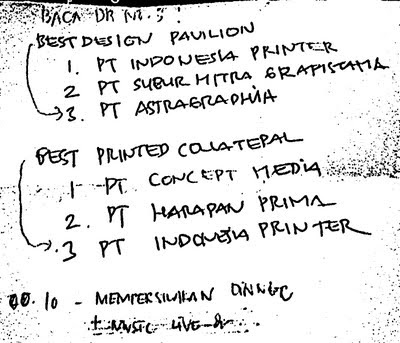 BACA DR NO. 3!
BEST DESIGN PAVILION
1. PT INDONESIA PRINTER
2 PT SUBUR MITRA GRAFISTAMA
3. PT ASTRAGRAPHIA
BEST PRINTED COLLATERAL
1 PT. CONCEPT MEDIA
2. PT HARAPAN PRIMA
3 PT INDONESIA PRINTER
.10 - MEMPERSILHKAN DINNER
+ MUSIC LIVE